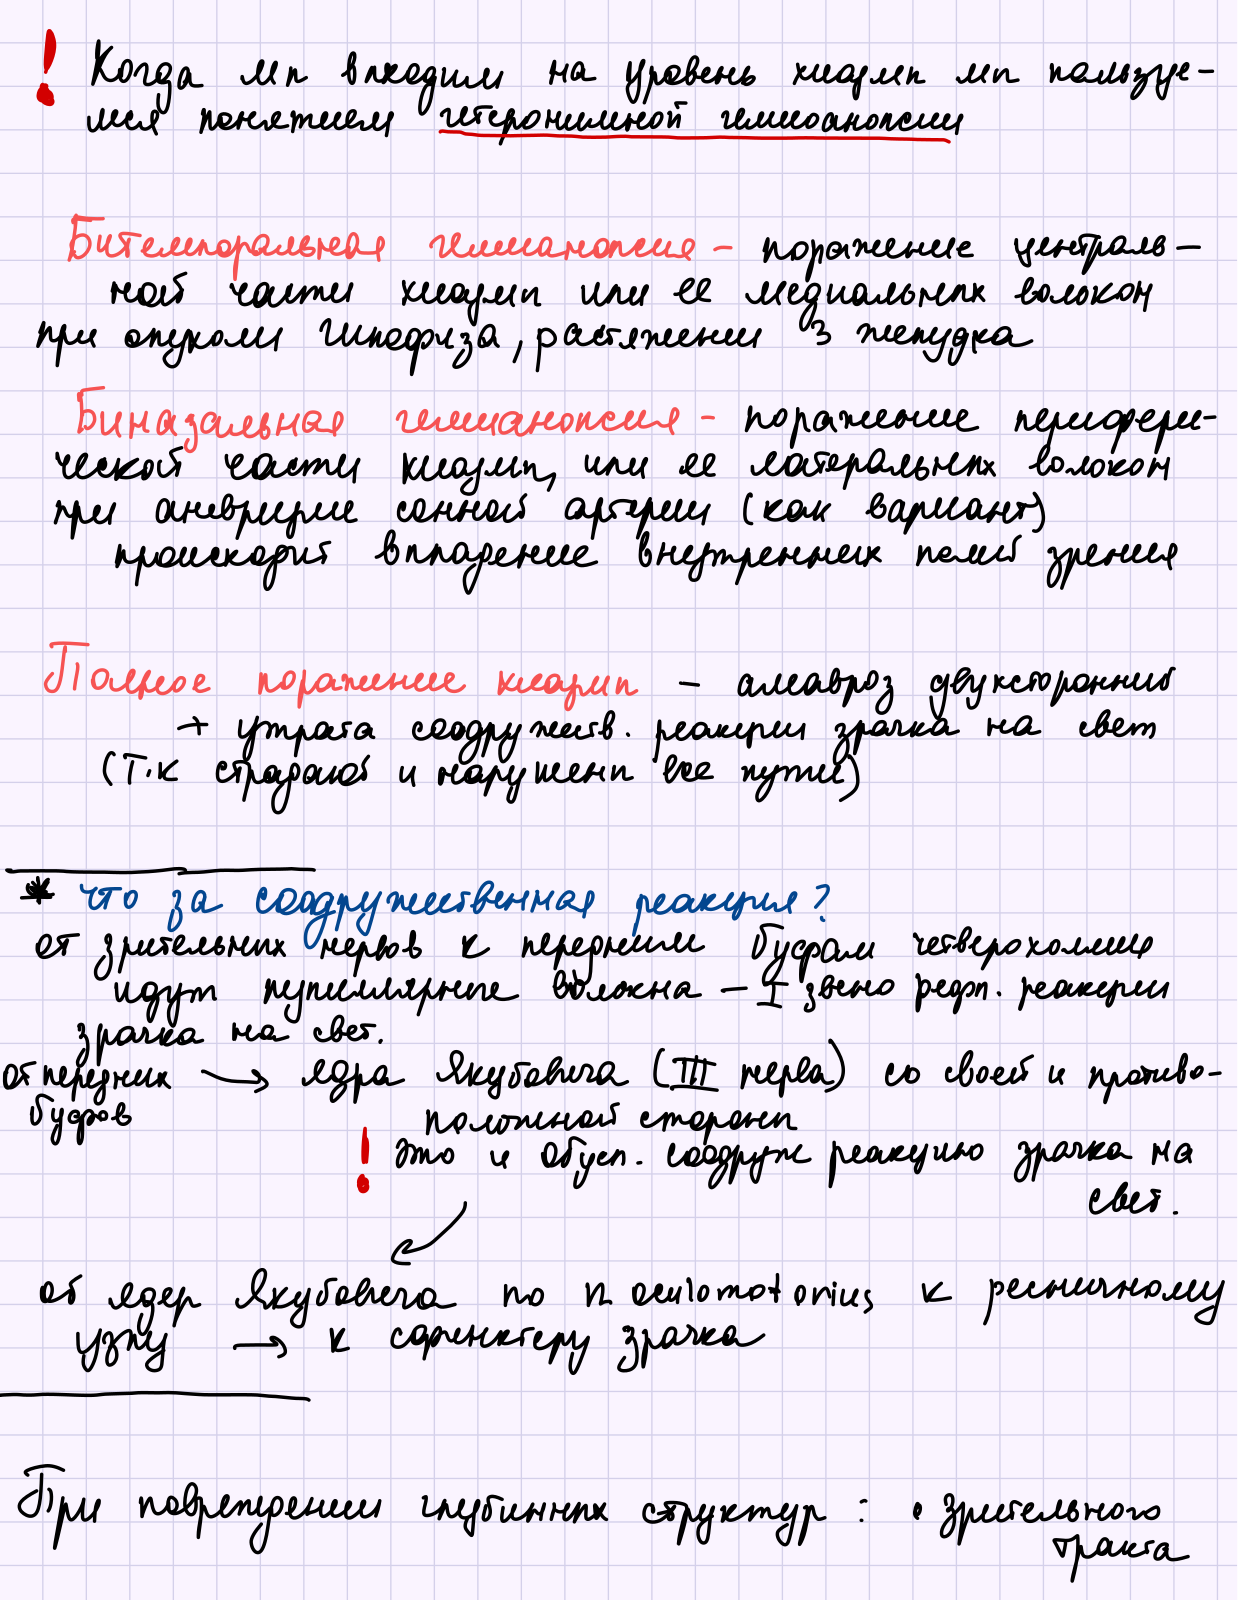 ! Когда мы входим на уровень хиазмы мы пользуе-
мся понятием гетеронимной гемиоанопсии
Битемпоральная гемианопсия - поражение централь-
ной части хиазмы или ее медиальных волокон
при опухоли гипофиза, растяжении 3 желудка
Биназальная гемианопсия - поражение перифери-
ческой части хиазмы, или ее латеральных волокон
при аневризме сонной артерии (как вариант)
происходит выпадение внутренних полей зрения
Полное поражение хиазмы - амавроз двухсторонний
+ утрата содружеств. реакции зрачка на свет
(т.к страдают и нарушены все пути)
* что за содружественная реакция?
от зрительных нервов к передним буграм четверохолмие
идут пупиллярные волокна - I звено рефл. реакции
зрачка на свет.
от передних → ядра Якубовича (III нерва) со своей и противо-
бугров положной стороны
! это и обусл. содруж реакцию зрачка на
свет.
от ядер Якубовича по n oculomotorius к ресничному
узлу → к сфинктеру зрачка
При повреждении глубинных структур : • зрительного
тракта